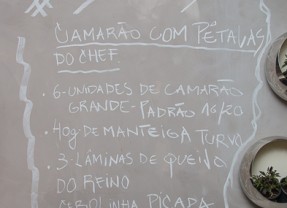 CAMARÃO COM PÉTALAS
DO CHEF.
. 6-UNIDADES DE CAMARÃO
GRANDE-PADRÃO 16/20
. 40g-DE MANTEIGA TURVO
. 3-LÂMINAS DE QUEIJO
DO REINO
CEBOLINHA PICADA